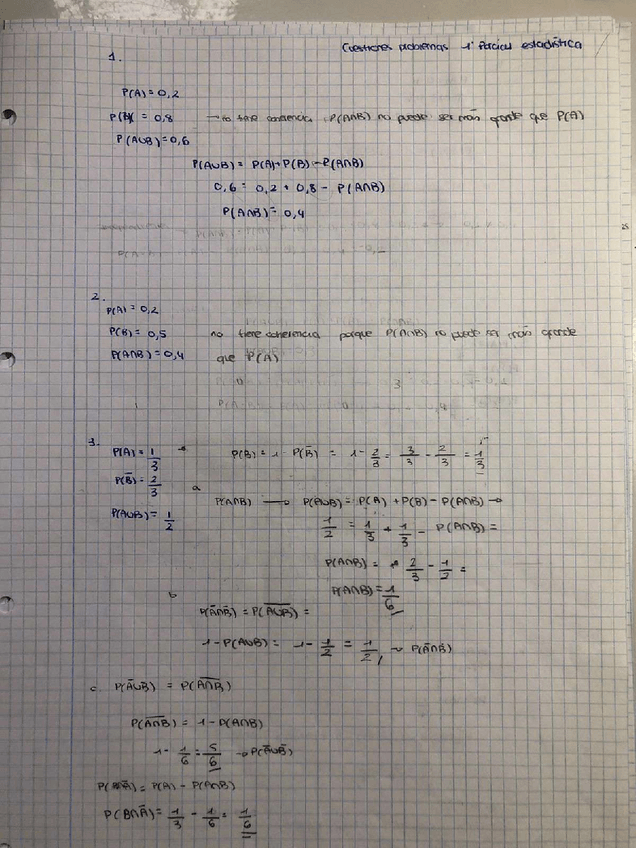 Cuestiones problemas 1º Parcial estadística
1.
P(A) = 0,2
P(B) = 0,8 → no tiene coherencia, P(A∩B) no puede ser más grande que P(A)
P(A∪B) = 0,6
P(A∪B) = P(A) + P(B) - P(A∩B)
0,6 = 0,2 + 0,8 - P(A∩B)
P(A∩B) = 0,4
2.
P(A) = 0,2
P(B) = 0,5 no tiene coherencia porque P(A∩B) no puede ser más grande
P(A∩B) = 0,4 que P(A)
3.
P(A) = 1/3 P(B) = 1 - P(B̄) = 1 - 2/3 = 3/3 - 2/3 = 1/3
P(B̄) = 2/3
a
P(A∪B) = 1/2 P(A∩B) → P(A∪B) = P(A) + P(B) - P(A∩B) →
1/2 = 1/3 + 1/3 - P(A∩B) =
P(A∩B) = 2/3 - 1/2 =
P(A∩B) = 1/6
b
P(Ā∩B̄) = P(\overline{A∪B}) =
1 - P(A∪B) = 1 - 1/2 = 1/2, → P(Ā∩B̄)
c. P(Ā∪B̄) = P(\overline{A∩B})
P(\overline{A∩B}) = 1 - P(A∩B)
1 - 1/6 = 5/6 → P(Ā∪B̄)
= P(A) - P(A∩B)
P(B∩Ā) = 1/3 - 1/6 = 1/6